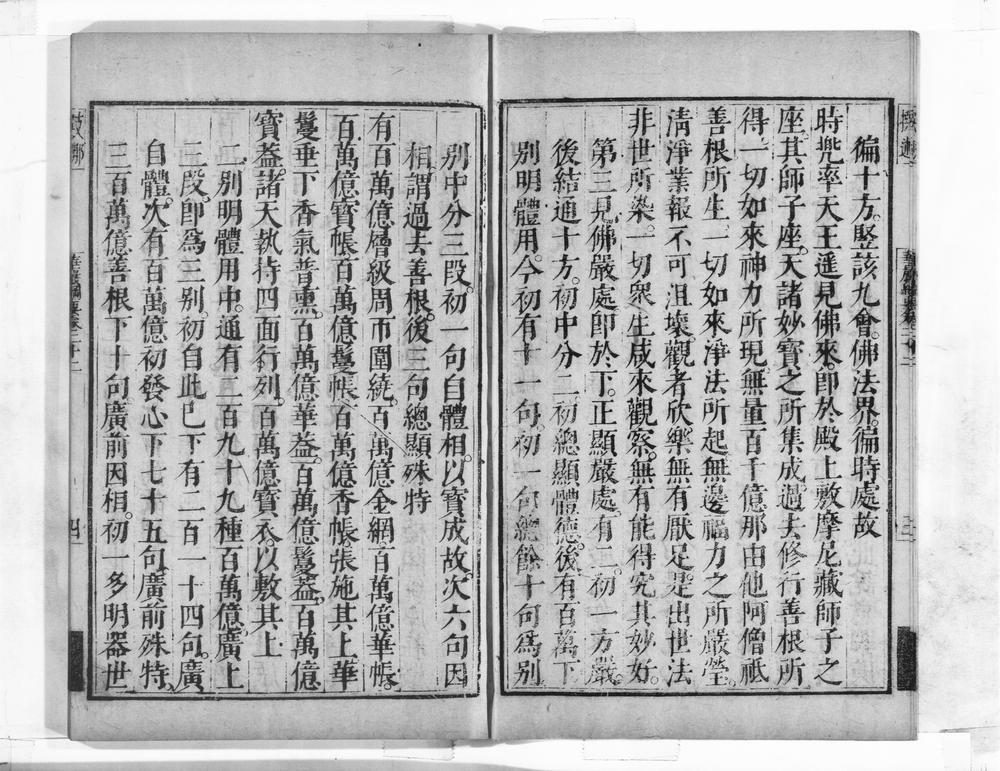 徧十方。竪該九會。佛法界。徧時處故
時兜率天王遥見佛來。卽於殿上敷摩尼藏師子之
座。其師子座。天諸妙寶之所集成。過去修行善根所
得。一切如來神力所現。無量百千億那由他阿僧祗
善根所生。一切如來淨法所起。無邊福力之所嚴瑩。
淸淨業報不可沮壞。觀者欣樂無有厭足。是出世法
非世所染。一切衆生咸來觀察。無有能得究其妙好。
第三見佛嚴處。卽於下。正顯嚴處。有二。初一方嚴。
後結通十方。初中分二。初總顯體德。後有百萬下
別明體用。今初有十一句。初一句總。餘十句爲別
別中分三段。初一句自體相。以寶成故。次六句因
相。謂過去善根。後三句總顯殊特
有百萬億層級周帀圍繞。百萬億金網百萬億華帳。
百萬億寶帳。百萬億鬘帳。百萬億香帳張施其上。華
鬘垂下香氣普熏。百萬億華葢。百萬億鬘葢。百萬億
寶葢。諸天執持四面行列。百萬億寶衣。以敷其上
二別明體用中。通有三百九十九種百萬億。廣上
三段。卽爲三別。初自此已下有二百一十四句。廣
自體。次有百萬億初發心下七十五句。廣前殊特。
三百萬億善根下十句。廣前因相。初一多明器世
華嚴綱要卷二十二
四